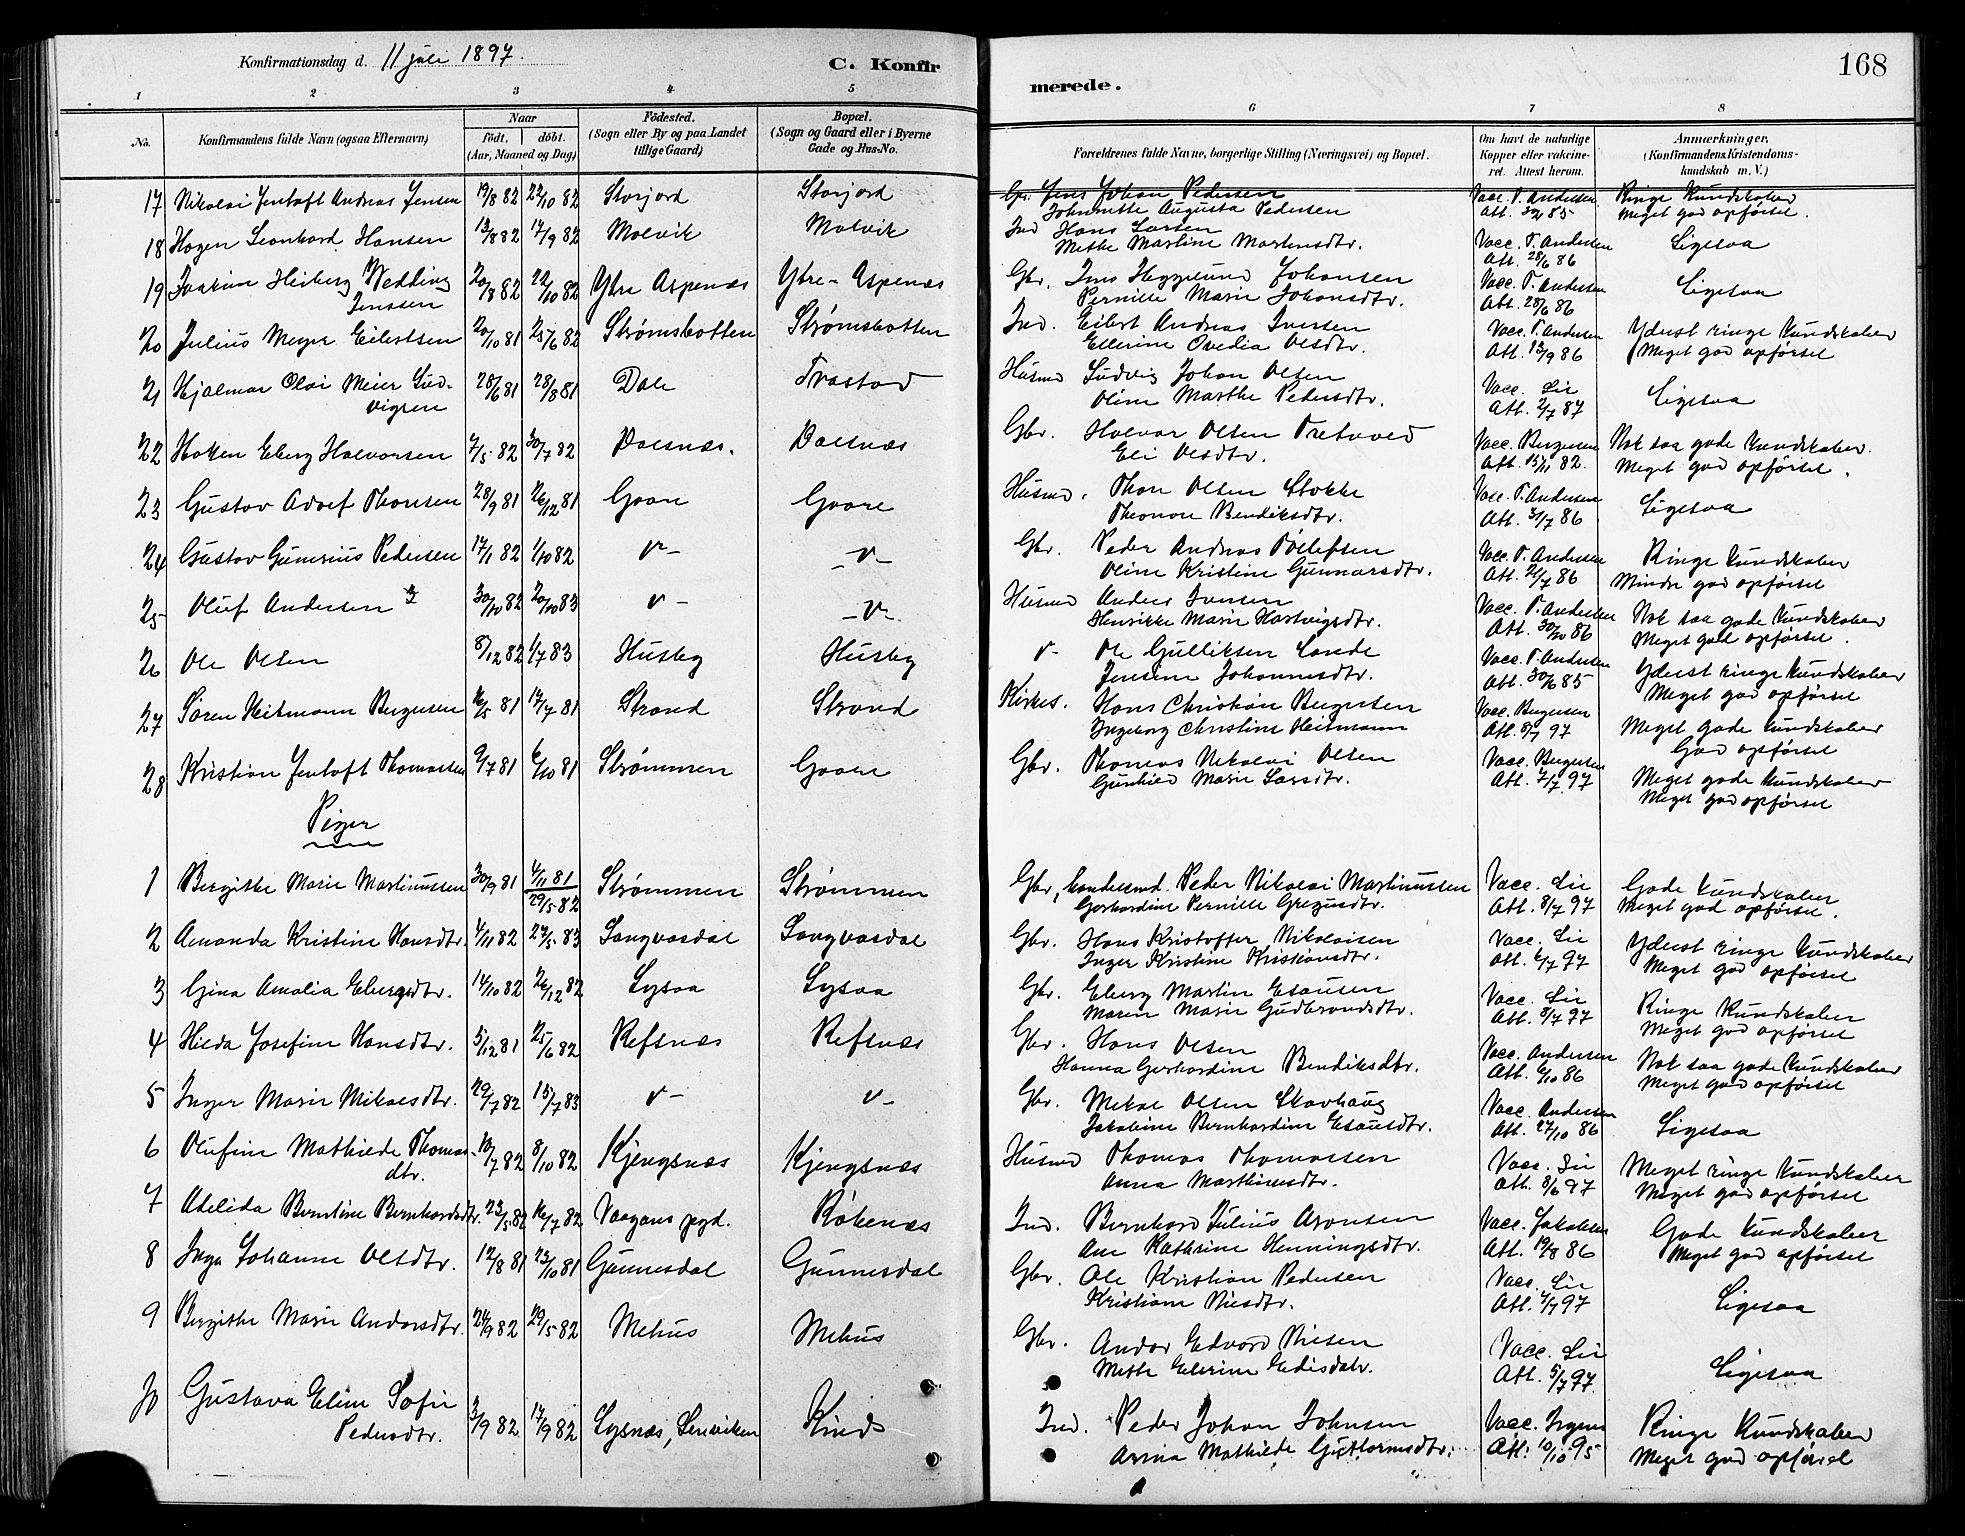 Konfirmationsdag d. 11 juli 1897.
C. Konfirmerede.
168
1 2 3 4 5 6 7 8
No. | Konfirmandens fulde Navn (ogsaa Efternavn) | Naar födt. döbt. (Aar, Maaned og Dag) | Födested. (Sogn eller By og paa Landet tillige Gaard) | Bopæl. (Sogn og Gaard eller i Byerne Gade og Hus-No. | Forældrenes fulde Navne, borgerlige Stilling (Næringsvei) og Bopæl. | Om havt de naturlige Kopper eller vakcineret. Attest herom. | Anmærkninger, (Konfirmandens Kristendomskundskab m. V.)
17 Nikolai Jentoft Andreas Jensen 19/8 82 22/10 82 Storjord Storjord Jens Johan Pedersen Vacc. T. Andersen Ringe Kundskaber
Johannette Augusta Pedersen Att. 85 Meget god opførsel.
18 Hagen Leonhard Hansen 13/8 82 17/9 82 Molvik Molvik Ind Hans Larsen Vacc. T. Andersen Ligesaa
Mette Martine Martinsdtr. Att. 28/6 86
19 Joakim Heiberg Wedding 20/8 82 22/10 82 Ytre Aspenæs Ytre-Aspenæs Gbr. Jens Hegglund Johansen Vacc. T. Andersen Ligesaa
Jenssen Pernille Marie Johansdtr. Att. 28/6 86
20 Julius Meyer Eilertsen 20/10 81 25/6 82 Strømsbotten Strømsbotten Ind. Eilert Andreas Iversen Vacc. T. Andersen Yderst ringe Kundskaber
Ellerine Ovedia Olsdtr. Att. 13/9 86 Meget god opførsel
21 Hjalmar Olai Meier Lud- 28/6 81 28/8 81 Dale Trastad Husmd Ludvig Johan Olsen Vacc. Lie Ligesaa
vigsen Oline Marthe Pedersdtr. Att. 2/7 87
22 Hakken Eberg Halvorsen 4/5 82 30/7 82 Dalsnæs. Dalsnæs Gbr. Halvor Olsen Tretvoed Vacc. Bergesen Nok saa gode Kundskaber.
Eli Olsdtr. Att. 15/11 82. Meget god opførsel.
23 Gustav Adolf Thoresen 28/9 81 26/12 81 Gaare Gaare Husmd. Thore Olsen Stokke Vacc. T. Andersen Ligesaa
Theonore Bendiksdtr. Att. 31/7 86
24 Gustav Gunerius Pedersen 17/1 82 1/10 82 v- -v- Gbr. Peder Andreas Tollefsen Vacc. T. Andersen Ringe Kundskaber
Oline Kristine Gunnarsdtr. Att. 21/7 86 Mindre god opførsel
25 Oluf Andersen 30/10 82 20/10 83 v- -v- Husmd Anders Iversen Vacc. T. Andersen Nok saa gode Kundskaber
Henrikke Marie Hartvigsdtr. Att. 30/10 86 Meget god opførsel.
26 Ole Olsen 8/12 82 1/7 83 Husby Husby v- Ole Gulliksen Lande Vacc. T. Andersen Yderst ringe Kundskaber
Jensine Johannesdtr. Att. 30/6 85 Meget god opførsel
27 Sören Heitmann Bergesen 16/5 81 17/7 81 Strand Strand Kirkes. Hans Christian Bergesen Vacc. Bergesen Meget gode Kundskaber
Ingeborg Christine Heitmann Att. 8/7 97 God opførsel
28 Kristian Jentoft Thomassen 9/7 81 6/10 81 Strømmen Gaare Gbr. Thomas Nikolai Olsen Vacc. Bergesen Meget gode Kundskaber
Gunhild Marie Larsdtr. Att. 7/7 97 Meget god opførsel
Piger
1 Bergitte Marie Martinussen 30/9 81 4/11 81 Strømmen Strømmen Gbr, Handelsmd. Peder Nikolai Martinussen Vacc. Lie Gode Kundskaber
29/5 82 Gerhardine Pernille Gregusdtr. Att. 8/7 97 Meget god opførsel.
2 Amanda Kristine Hansdtr. 4/11 82 27/5 83 Langvasdal Langvasdal Gbr. Hans Kristoffer Nikolaisen Vacc. Lie Yderst ringe Kundskaber
Inger Kristine Kristiansdtr. Att. 6/7 97 Meget god opførsel
3 Gina Amalia Ebergsdtr. 14/10 82 26/12 82 Lysaa Lysaa Gbr. Eberg Martin Esausen Vacc. Lie Ringe Kundskaber
Maren Marie Gudbrandsdtr. Att. 8/7 97 Meget god opførsel
4 Hilda Josefine Hansdtr. 5/12 81 25/6 82 Refsnæs Refsnæs Gbr. Hans Olsen Vacc. Andersen Nok saa gode Kundskaber
Hanna Gerhardine Bendiksdtr. Att. 6/10 86 Meget god opførsel
5 Inger Marie Mikalsdtr. 29/7 82 15/7 83 v- v- Gbr. Mekal Olsen Skavhaug Vacc. Andersen Ligesaa
Jakobine Bernhardine Esausdtr. Att. 27/10 86
6 Olufine Mathilde Thomas- 10/7 82 8/10 82 Kjengsnæs Kjengsnæs Husmd Thomas Thomassen Vacc. Lie Meget ringe Kundskaber
dtr. Anna Marthinusdtr. Att. 8/6 97 Meget god opførsel
7 Adelida Berntine Bernhardsdtr. 23/5 82 16/7 82 Vaagans pgd. Røkenæs Ind. Bernhard Julius Aronsen Vacc. Jakobsen Gode Kundskaber
Ane Kathrine Henningsdtr. Att. 19/8 86 Meget god opførsel
8 Inga Johanne Olsdtr. 12/8 81 23/10 81 Gunnesdal Gunnesdal Gbr. Ole Kristian Pedersen Vacc. Lie Ligesaa
Kristiane Nilsdtr. Att. 4/7 97
9 Bergitte Marie Andorsdtr. 24/9 82 29/5 82 Melhus Melhus Gbr. Andor Edvard Nilsen Vacc. Lie Ligesaa
Mette Elerine Edisdatr. Att. 5/7 97
10 Gustava Eline Sofie 3/9 82 17/9 82 Lysnæs, Lenviken Kind Ind. Peder Johan Johnsen Vacc. Ringe Kundskaber
Pedersdtr. Arina Mathilde Guttormsdtr. Att. 10/10 95 Meget god opførsel